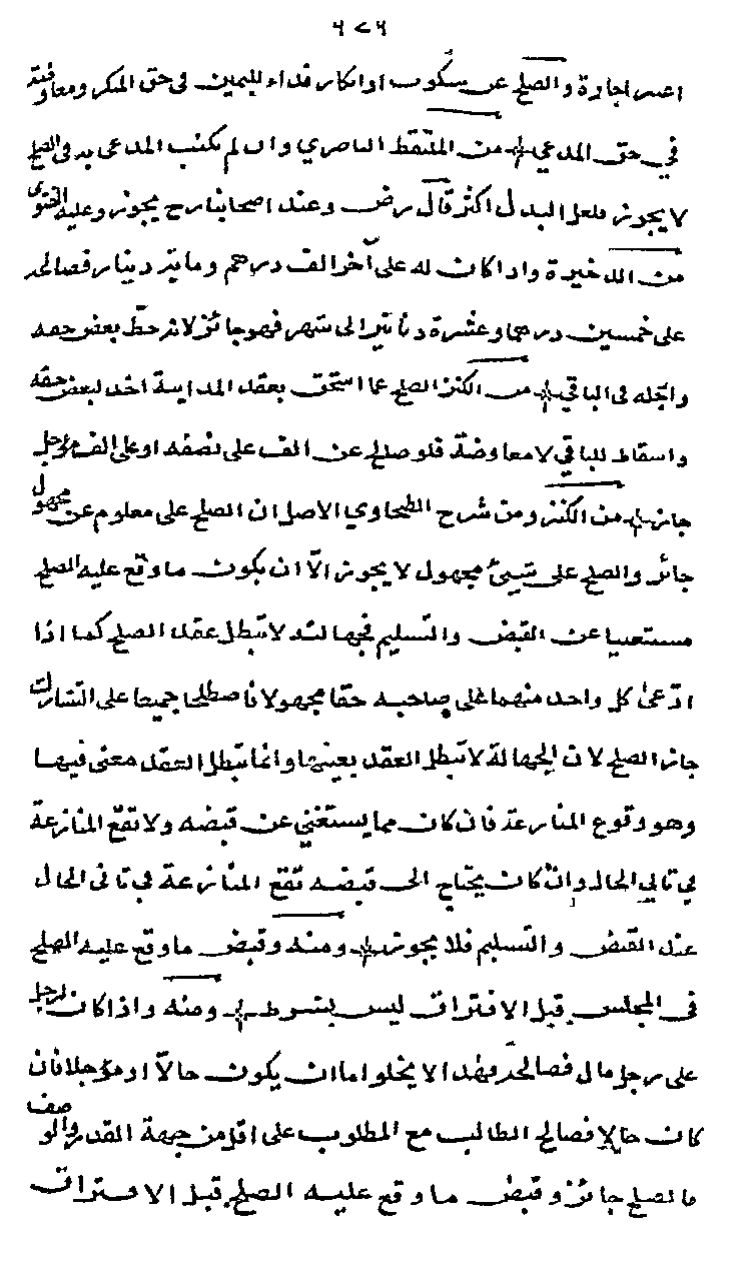 ٦٧٦
اعتبر اجارة والصلح عن سكوت او انكار فداء لليمين في حق المنكر ومعاوضة
في حق المدعي من الملتقط الناصري وان لم يكتب المدعى به في الصلح
لا يجوز فلعل البدل اكثر قال رض وعند اصحابنا رح يجوز وعليه الفتوى
من الذخيرة واذا كان له على آخر الف درهم ومائة دينار فصالحه
على خمسين درهما وعشرة دنانير الى شهر فهو جائز لانه حط بعض حقه
واجّله في الباقي من الكنز الصلح عما استحق بعقد المداينة اخذ لبعض حقه
واسقاط للباقي لا معاوضة فلو صالح عن الف على نصفه او على الف مؤجل
جاز من الكنز ومن شرح الطحاوي الاصل ان الصلح على معلوم عن مجهول
جائز والصلح على شيئ مجهول لا يجوز الّا ان يكون ما وقع عليه الصلح
مستغنيا عن القبض والتسليم فجهالته لا تبطل عقد الصلح كما اذا
ادّعى كل واحد منهما على صاحبه حقا مجهولا فاصطلحا جميعا على التتارك
جاز الصلح لان الجهالة لا تبطل العقد بعينها وانما تبطل العقد معنى فيها
وهو وقوع المنازعة فان كان مما يستغنى عن قبضه ولا تقع المنازعة
في ثاني الحال وان كان يحتاج الى قبضه تقع المنازعة في ثاني الحال
عند القبض والتسليم فلا يجوز ومنه وقبض ما وقع عليه الصلح
في المجلس قبل الافتراق ليس بشرط ومنه واذا كان لرجل
على رجل مال فصالحه فهذا لا يخلوا اما ان يكون حالّا او مؤجلا فان
كان حالا فصالح الطالب مع المطلوب على اقل من جهة القدر والوصف
فالصلح جائز وقبض ما وقع عليه الصلح قبل الافتراق